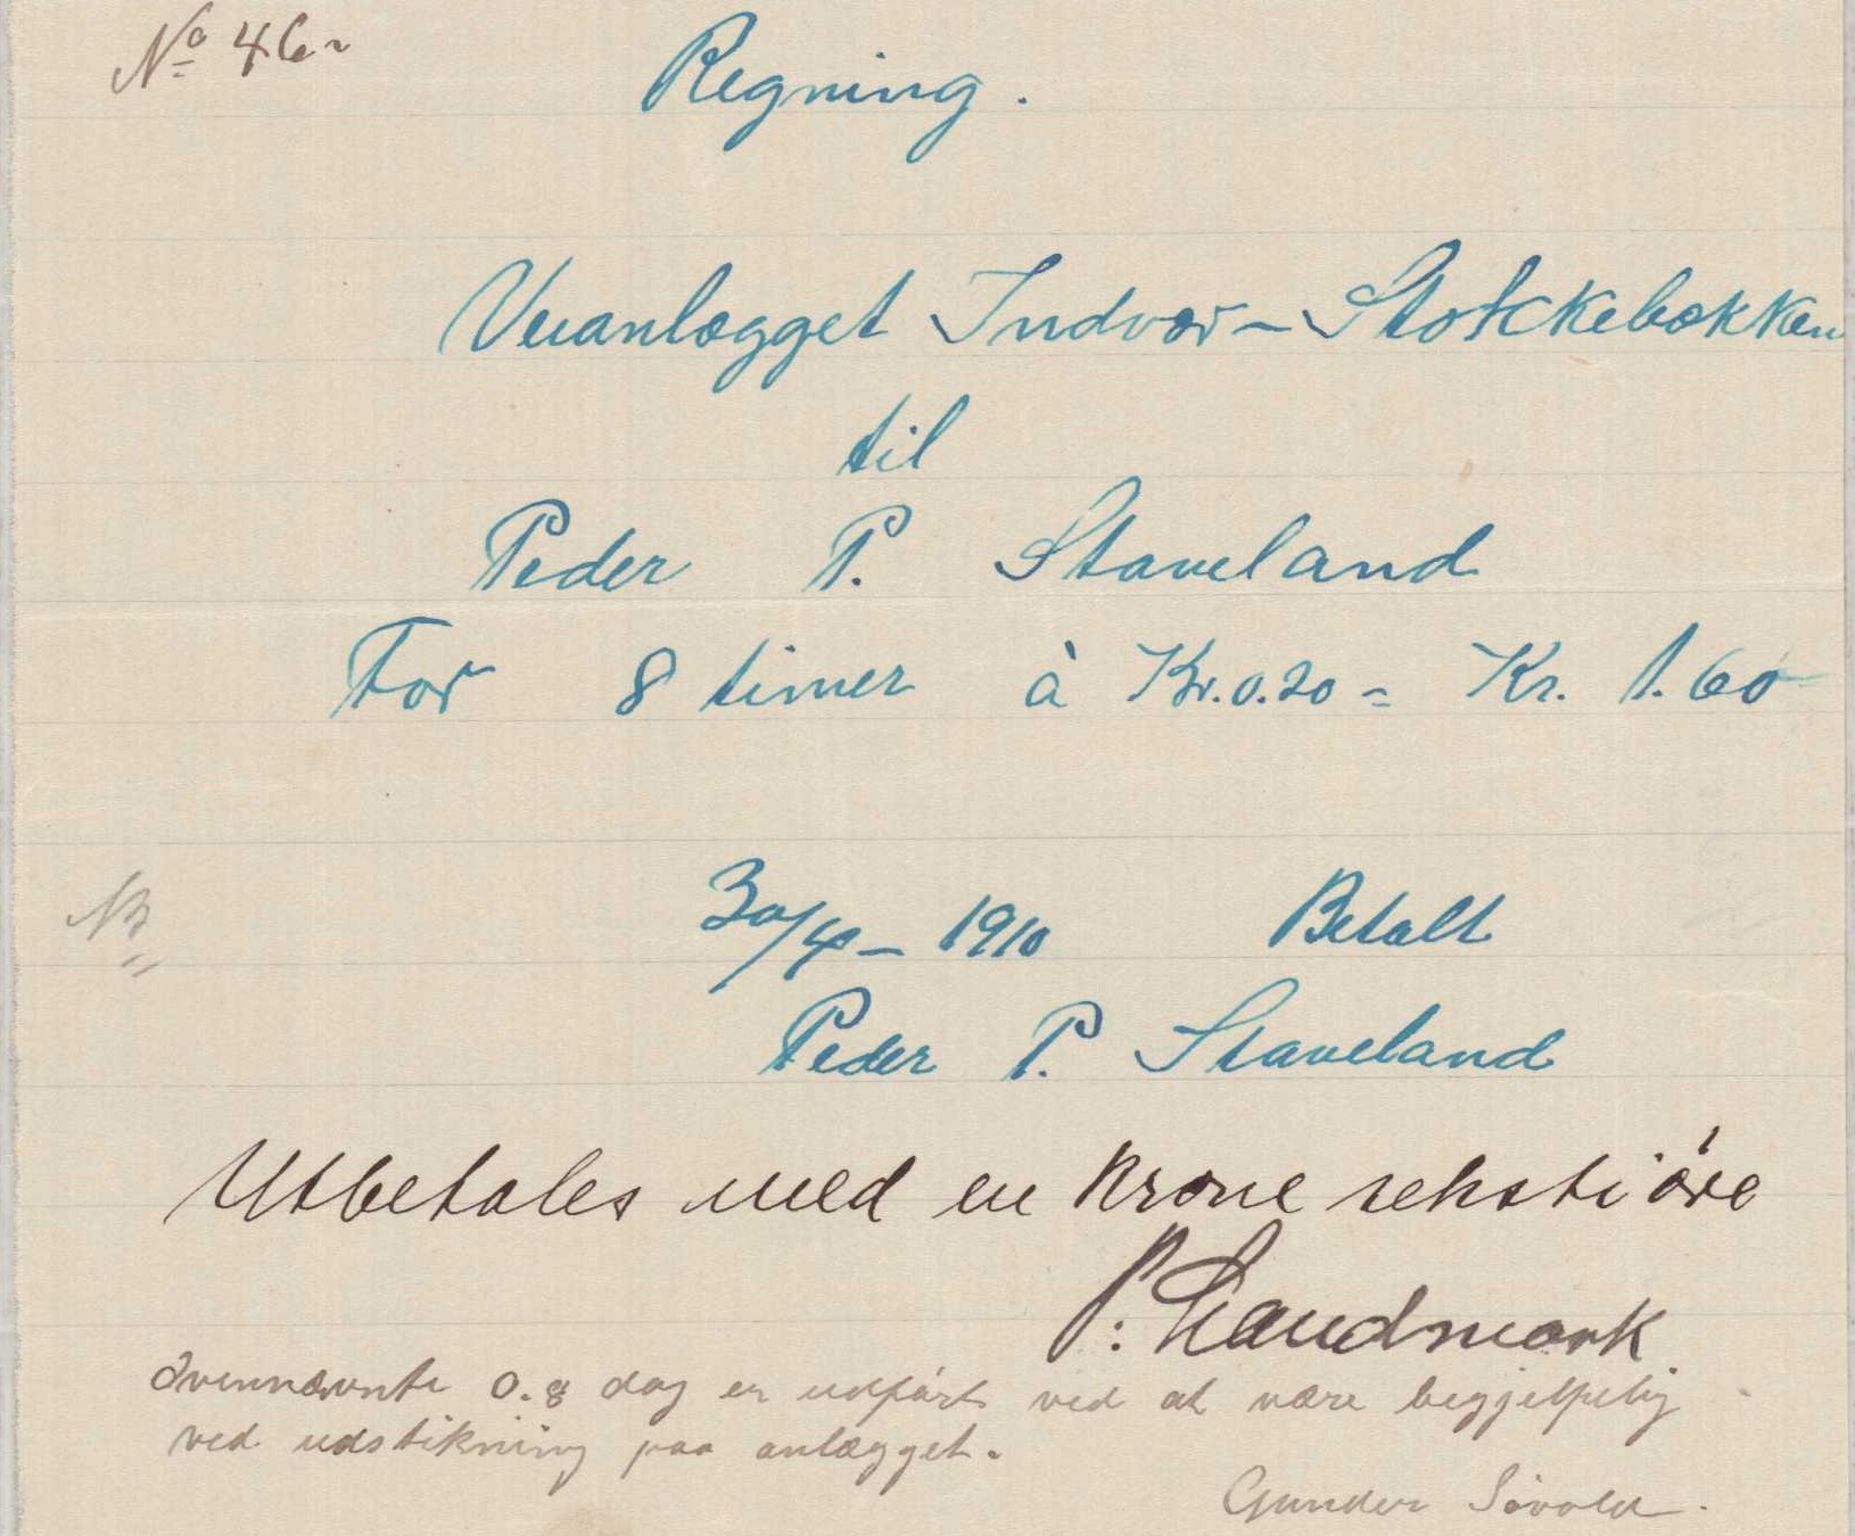 No 46
Regning.
Veianlægget Indvær - Stokkebækken
til
Peder P. Staveland
For 8 timer à Kr. 0.20 = Kr. 1.60
30/4 - 1910 Betalt
NB
Peder P. Staveland
Utbetales med en krone seksti øre
P. Landmark
Ovennævnte 0.8 dag er udført ved at være
ved udstikning paa anlægget.
Gunder